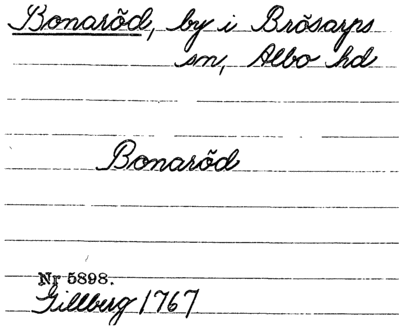 Bonaröd, by i Brösarps
sn, Albo hd
Bonaröd
Nr 5898.
Gillberg 1767